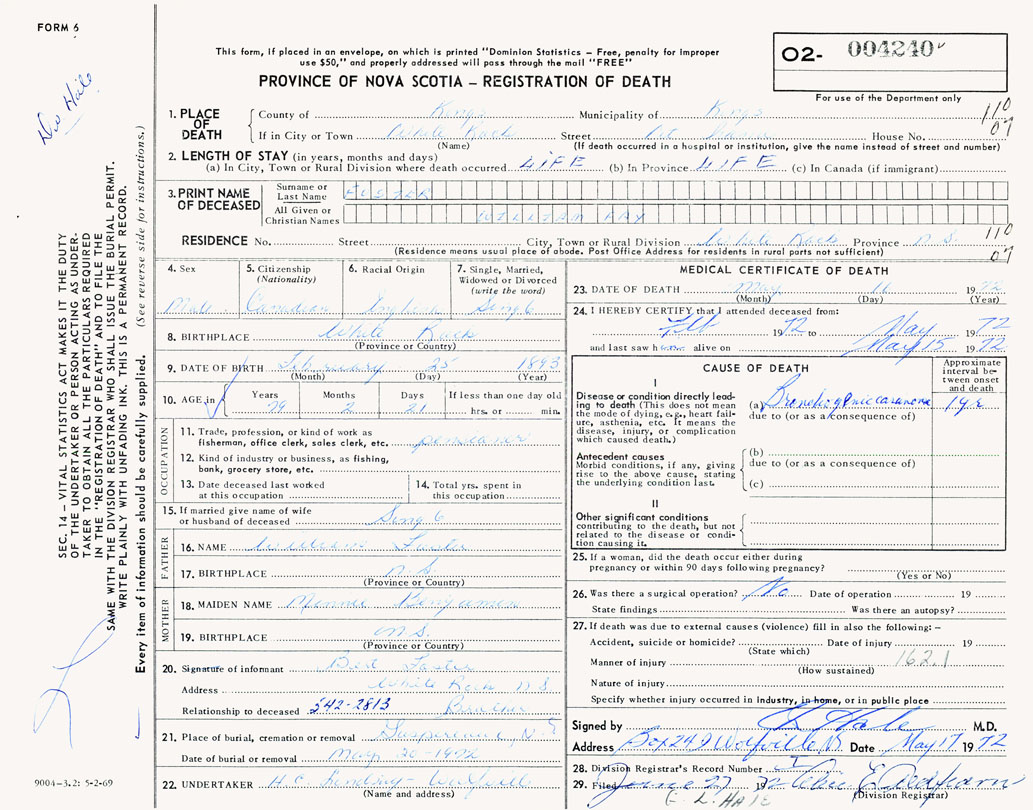 FORM 6
This form, if placed in an envelope, on which is printed "Dominion Statistics – Free, penalty for improper
use $50," and properly addressed will pass through the mail "FREE"
PROVINCE OF NOVA SCOTIA – REGISTRATION OF DEATH
O2- 004240
For use of the Department only
110
07
1. PLACE OF DEATH
County of Kings Municipality of Kings
If in City or Town White Rock Street House No.
(Name) (If death occurred in a hospital or institution, give the name instead of street and number)
2. LENGTH OF STAY (in years, months and days)
(a) In City, Town or Rural Division where death occurred LIFE (b) In Province LIFE (c) In Canada (if immigrant)
3. PRINT NAME OF DECEASED
Surname or Last Name FOSTER
All Given or Christian Names WILLIAM RAY
RESIDENCE No. Street City, Town or Rural Division White Rock Province N.S. 110
(Residence means usual place of abode. Post Office Address for residents in rural parts not sufficient) 07
4. Sex
Male
5. Citizenship
(Nationality)
Canadian
6. Racial Origin
English
7. Single, Married,
Widowed or Divorced
(write the word)
Single
8. BIRTHPLACE White Rock
(Province or Country)
9. DATE OF BIRTH February 25 1893
(Month) (Day) (Year)
10. AGE in Years Months Days If less than one day
79 2 21 hrs. or min.
OCCUPATION
11. Trade, profession, or kind of work as
fisherman, office clerk, sales clerk, etc. pensioner
12. Kind of industry or business, as fishing,
bank, grocery store, etc.
13. Date deceased last worked
at this occupation
14. Total yrs. spent in
this occupation
15. If married give name of wife
or husband of deceased Single
FATHER
16. NAME William Foster
17. BIRTHPLACE N.S.
(Province or Country)
MOTHER
18. MAIDEN NAME Minnie Benjamin
19. BIRTHPLACE N.S.
(Province or Country)
20. Signature of informant Foster
Address White Rock N.S.
Relationship to deceased 542-2813 Brother
21. Place of burial, cremation or removal Gaspereau, N.S.
Date of burial or removal May 20-1972
22. UNDERTAKER H.C. Lindsay- Wolfville
(Name and address)
MEDICAL CERTIFICATE OF DEATH
23. DATE OF DEATH May 16 1972
(Month) (Day) (Year)
24. I HEREBY CERTIFY that I attended deceased from:
Feb 1972 to May 1972
and last saw h alive on May 15 1972
CAUSE OF DEATH
Approximate
interval be-
tween onset
and death
I
Disease or condition directly lead-
ing to death (This does not mean
the mode of dying, e.g., heart fail-
ure, asthenia, etc. It means the
disease, injury, or complication
which caused death.)
(a) Bronchogenic carcinoma
due to (or as a consequence of)
Antecedent causes
Morbid conditions, if any, giving
rise to the above cause, stating
the underlying condition last.
(b)
due to (or as a consequence of)
(c)
II
Other significant conditions
contributing to the death, but not
related to the disease or condi-
tion causing it.
25. If a woman, did the death occur either during
pregnancy or within 90 days following pregnancy?
(Yes or No)
26. Was there a surgical operation? No Date of operation 19
State findings Was there an autopsy?
27. If death was due to external causes (violence) fill in also the following: –
Accident, suicide or homicide? Date of injury 19
(State which)
Manner of injury 162.1
(How sustained)
Nature of injury
Specify whether injury occurred in industry, in home, or in public place
Signed by Hale M.D.
Address Box 249 Wolfville N.S. Date May 17 1972
28. Division Registrar's Record Number
29. Filed June 27 1972
(Division Registrar)
E. L. HALE
Drs Hale
SEC. 14 – VITAL STATISTICS ACT MAKES IT THE DUTY
OF THE UNDERTAKER OR PERSON ACTING AS UNDER-
TAKER TO OBTAIN ALL THE PARTICULARS REQUIRED
IN THE "REGISTRATION OF DEATH" AND TO FILE THE
SAME WITH THE DIVISION REGISTRAR WHO SHALL ISSUE THE BURIAL PERMIT.
WRITE PLAINLY WITH UNFADING INK. THIS IS A PERMANENT RECORD.
Every item of information should be carefully supplied. (See reverse side for instructions.)
9004–3.2: 5-2-69